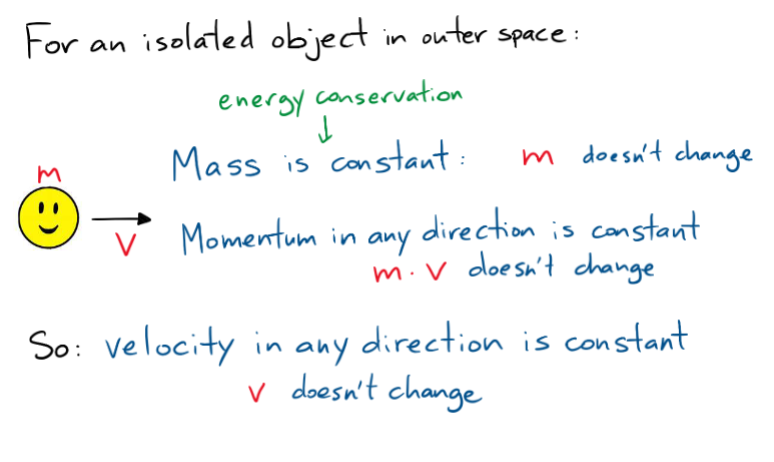 For an isolated object in outer space:
energy conservation
↓
m
Mass is constant: m doesn't change
V
Momentum in any direction is constant
m · v doesn't change
So: velocity in any direction is constant
v doesn't change